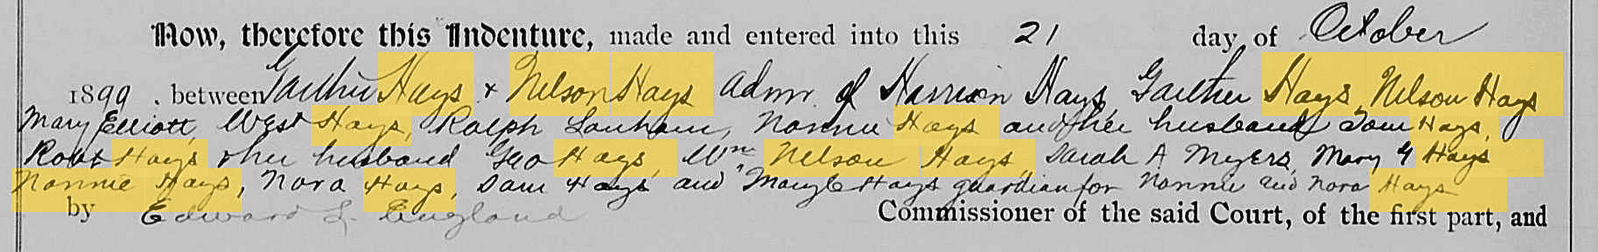 Now, therefore this Indenture, made and entered into this 21 day of October
1899. between Gaither Hays & Nelson Hays Admr. of Harrison Hays, Gaither Hays, Nelson Hays
Mary Elliott, West Hays, Ralph Lanham, Nannie Hays and her husband Tom Hays,
Hays & her husband Geo Hays, Wm Nelson Hays, Sarah A Myers, Mary G Hays
Nannie Hays, Nora Hays, Sam Hays and Mary E Hays guardian for Nannie and Nora Hays
by Edward L. England Commissioner of the said Court, of the first part, and